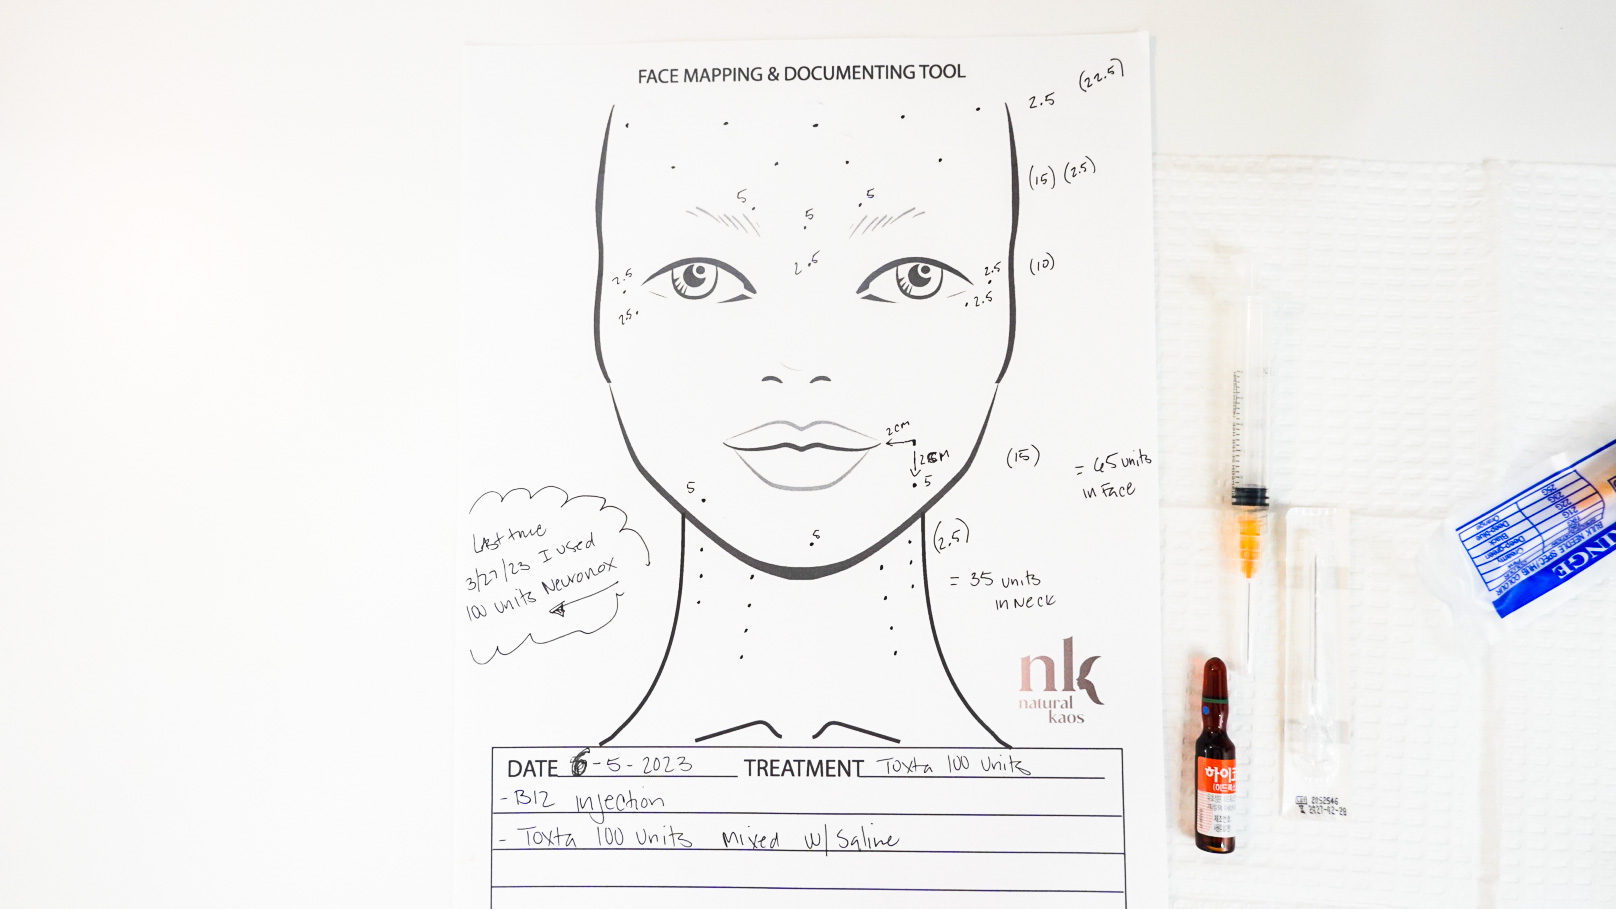 FACE MAPPING & DOCUMENTING TOOL
2.5 (22.5)
(15) (2.5)
5 5 5
2.5
2.5 2.5 (10)
2.5 2.5
2CM
2CM
(15) = 65 units
in Face
5 5
5
(2.5)
= 35 units
in Neck
Last time
3/27/23 I used
100 units Neuronox
nk
natural
kaos
DATE 6-5-2023 TREATMENT Toxta 100 units
- B12 injection
- Toxta 100 units Mixed w/ Saline
하이코
INGE
2027-02-28